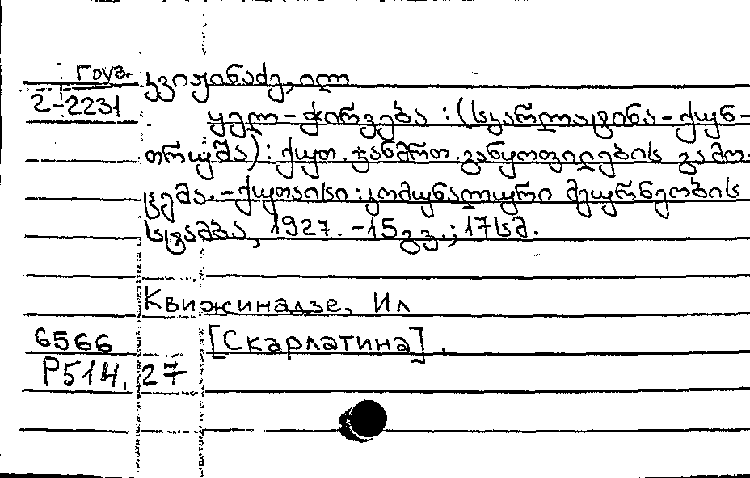 Груз. კვიჟინაძე, ილ
2-2231
ყელ-ჭირვება : (სკარლატინა-ქუნ-
თრუშა) : ქუთ. ჯანმრთ. განყოფილების გამო-
ცემა. - ქუთაისი : კომუნალური მეურნეობის
სტამბა, 1927. - 15 გვ. ; 17 სმ.
Квижинадзе, Ил
6566 [Скарлатина].
Р514, 27